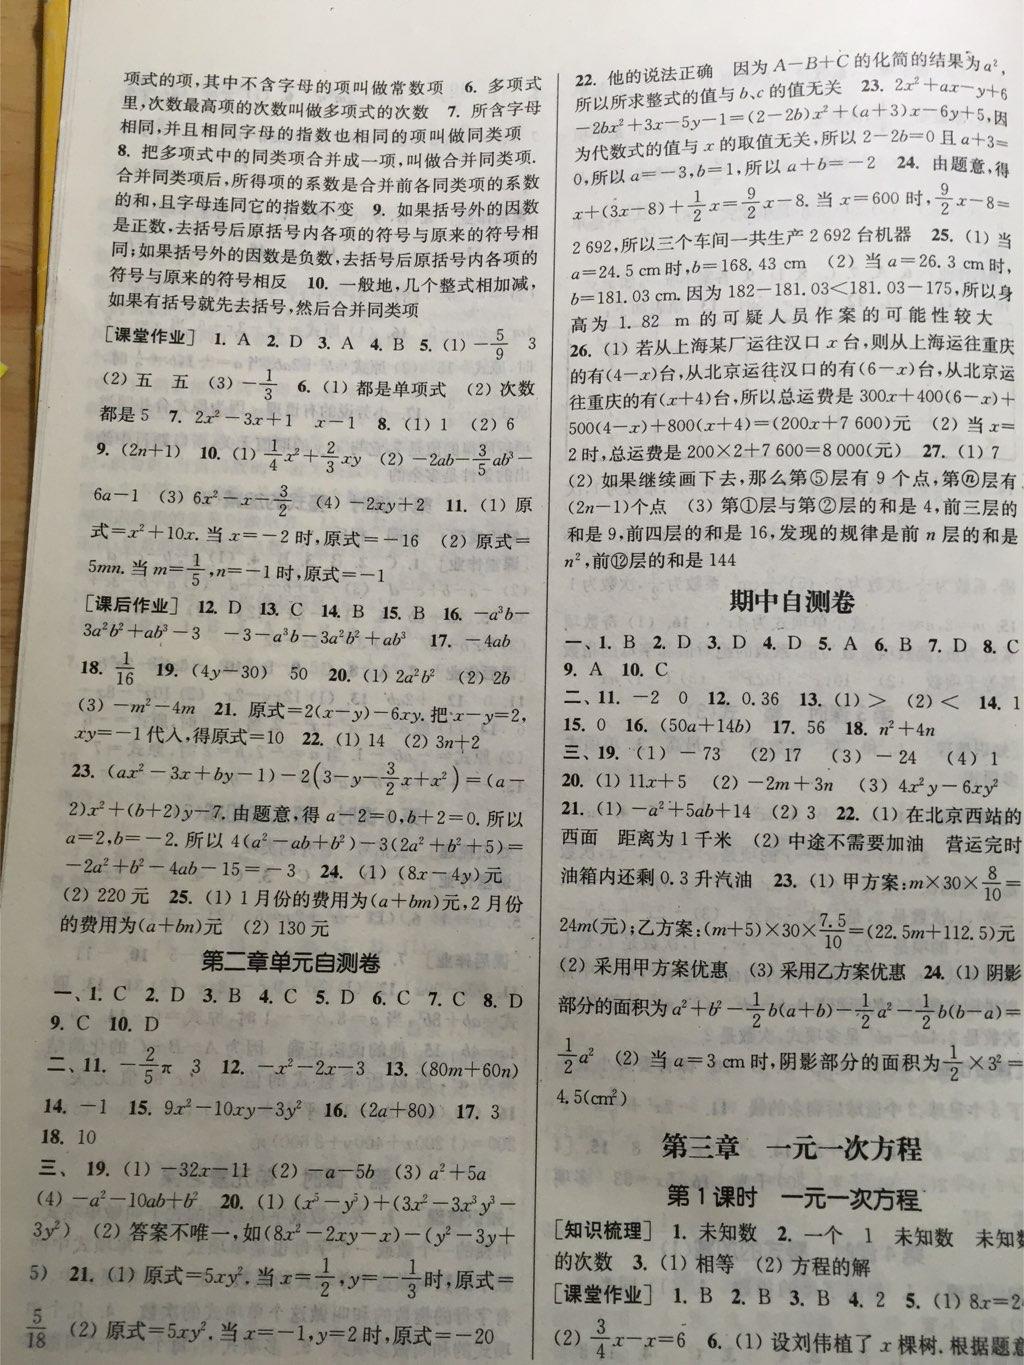 项式的项,其中不含字母的项叫做常数项 6. 多项式
里,次数最高项的次数叫做多项式的次数 7. 所含字母
相同,并且相同字母的指数也相同的项叫做同类项
8. 把多项式中的同类项合并成一项,叫做合并同类项.
合并同类项后,所得项的系数是合并前各同类项的系数
的和,且字母连同它的指数不变 9. 如果括号外的因数
是正数,去括号后原括号内各项的符号与原来的符号相
同;如果括号外的因数是负数,去括号后原括号内各项的
符号与原来的符号相反 10. 一般地,几个整式相加减,
如果有括号就先去括号,然后合并同类项
[课堂作业] 1. A 2. D 3. A 4. B 5. (1) -5/9 3
(2) 五 五 (3) -1/3 6. (1) 都是单项式 (2) 次数
都是 5 7. 2x²-3x+1 x-1 8. (1) 1 (2) 6
9. (2n+1) 10. (1) 1/4x²+2/3xy (2) -2ab-3/5ab³-
6a-1 (3) 6x²-x-3/2 (4) -2xy+2 11. (1) 原
式=x²+10x. 当 x=-2 时,原式=-16 (2) 原式=
5mn. 当 m=1/5,n=-1 时,原式=-1
[课后作业] 12. D 13. C 14. B 15. B 16. -a³b-
3a²b²+ab³-3 -3-a³b-3a²b²+ab³ 17. -4ab
18. 1/16 19. (4y-30) 50 20. (1) 2a²b² (2) 2b
(3) -m²-4m 21. 原式=2(x-y)-6xy. 把 x-y=2,
xy=-1 代入,得原式=10 22. (1) 14 (2) 3n+2
23. (ax²-3x+by-1)-2(3-y-3/2x+x²)=(a-
2)x²+(b+2)y-7. 由题意,得 a-2=0,b+2=0. 所以
a=2,b=-2. 所以 4(a²-ab+b²)-3(2a²+b²+5)=
-2a²+b²-4ab-15=-3 24. (1) (8x-4y)元
(2) 220 元 25. (1) 1 月份的费用为(a+bm)元,2 月份
的费用为(a+bn)元 (2) 130 元
第二章单元自测卷
一、1. C 2. D 3. B 4. C 5. D 6. C 7. C 8. D
9. C 10. D
二、11. -2/5π 3 12. -x²-2x-3 13. (80m+60n)
14. -1 15. 9x²-10xy-3y² 16. (2a+80) 17. 3
18. 10
三、19. (1) -32x-11 (2) -a-5b (3) a²+5a
(4) -a²-10ab+b² 20. (1) (x⁵-y⁵)+(3x²-3x³y³-
3y²) (2) 答案不唯一,如(8x²-2xy-x)-(y²-3y+
5) 21. (1) 原式=5xy². 当 x=1/2,y=-1/3时,原式=
5/18 (2) 原式=5xy². 当 x=-1,y=2 时,原式=-20
22. 他的说法正确 因为 A-B+C 的化简的结果为 a²,
所以所求整式的值与 b、c 的值无关 23. 2x²+ax-y+6
-2bx²+3x-5y-1=(2-2b)x²+(a+3)x-6y+5,因
为代数式的值与 x 的取值无关,所以 2-2b=0 且 a+3=
0,所以 a=-3,b=1,所以 a+b=-2 24. 由题意,得
x+(3x-8)+1/2x=9/2x-8. 当 x=600 时,9/2x-8=
2 692,所以三个车间一共生产 2 692 台机器 25. (1) 当
a=24.5 cm 时,b=168.43 cm (2) 当 a=26.3 cm 时,
b=181.03 cm. 因为 182-181.03<181.03-175,所以身
高为 1.82 m 的可疑人员作案的可能性较大
26. (1) 若从上海某厂运往汉口 x 台,则从上海运往重庆
的有(4-x)台,从北京运往汉口的有(6-x)台,从北京运
往重庆的有(x+4)台,所以总运费是 300x+400(6-x)+
500(4-x)+800(x+4)=(200x+7 600)元 (2) 当 x=
2 时,总运费是 200×2+7 600=8 000(元) 27. (1) 7
(2) 如果继续画下去,那么第⑤层有 9 个点,第ⓝ层有
(2n-1)个点 (3) 第①层与第②层的和是 4,前三层的
和是 9,前四层的和是 16,发现的规律是前 n 层的和是
n²,前⑫层的和是 144
期中自测卷
一、1. B 2. D 3. D 4. D 5. A 6. B 7. D 8. C
9. A 10. C
二、11. -2 0 12. 0.36 13. (1) > (2) < 14. 1
15. 0 16. (50a+14b) 17. 56 18. n²+4n
三、19. (1) -73 (2) 17 (3) -24 (4) 1
20. (1) 11x+5 (2) -2m+3n (3) 4x²y-6xy²
21. (1) -a²+5ab+14 (2) 3 22. (1) 在北京西站的
西面 距离为 1 千米 (2) 中途不需要加油 营运完时
油箱内还剩 0.3 升汽油 23. (1) 甲方案:m×30×8/10=
24m(元);乙方案:(m+5)×30×7.5/10=(22.5m+112.5)元
(2) 采用甲方案优惠 (3) 采用乙方案优惠 24. (1) 阴影
部分的面积为 a²+b²-1/2b(a+b)-1/2a²-1/2b(b-a)=
1/2a² (2) 当 a=3 cm 时,阴影部分的面积为1/2×3²=
4.5(cm²)
第三章 一元一次方程
第 1 课时 一元一次方程
[知识梳理] 1. 未知数 2. 一个 1 未知数 未知数
的次数 3. (1) 相等 (2) 方程的解
[课堂作业] 1. B 2. B 3. B 4. 2 5. (1) 8x=24
(2) 3/4x-x=6 6. (1) 设刘伟植了 x 棵树. 根据题意